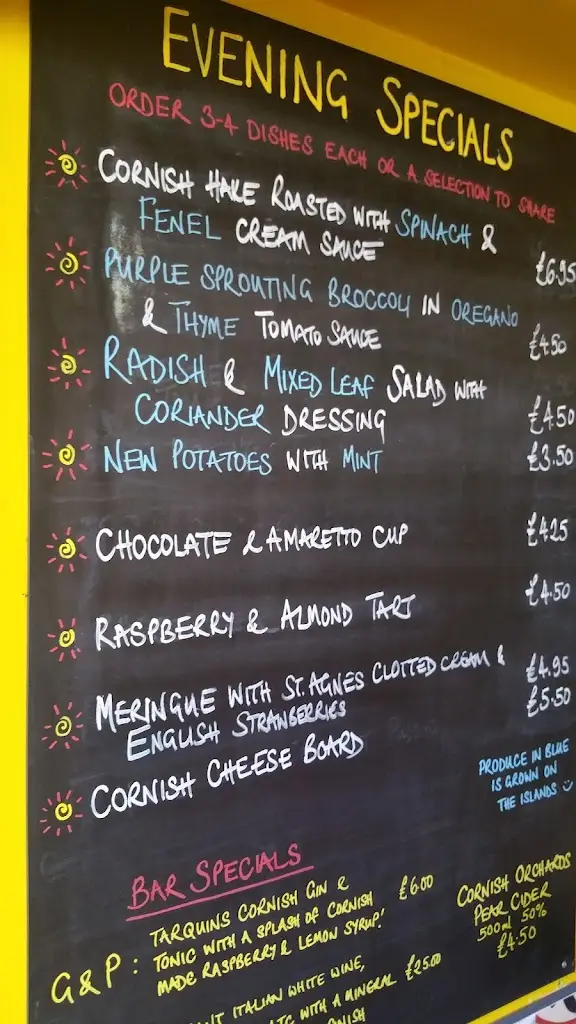 EVENING SPECIALS
ORDER 3-4 DISHES EACH OR A SELECTION TO SHARE
CORNISH HAKE ROASTED WITH SPINACH &
FENEL CREAM SAUCE £6.95
PURPLE SPROUTING BROCCOLI IN OREGANO
& THYME TOMATO SAUCE £4.50
RADISH & MIXED LEAF SALAD WITH
CORIANDER DRESSING £4.50
NEW POTATOES WITH MINT £3.50
CHOCOLATE & AMARETTO CUP £4.25
RASPBERRY & ALMOND TART £4.50
MERINGUE WITH ST. AGNES CLOTTED CREAM &
ENGLISH STRANBERRIES £4.95
CORNISH CHEESE BOARD £5.50
PRODUCE IN BLUE
IS GROWN ON
THE ISLANDS
BAR SPECIALS
G&P: TARQUINS CORNISH GIN & £6.00
TONIC WITH A SPLASH OF CORNISH
MADE RASPBERRY & LEMON SYRUP!
CORNISH ORCHARDS
PEAR CIDER
500ml 50%
£4.50
ITALIAN WHITE WINE, £25.00
WITH A MINERAL